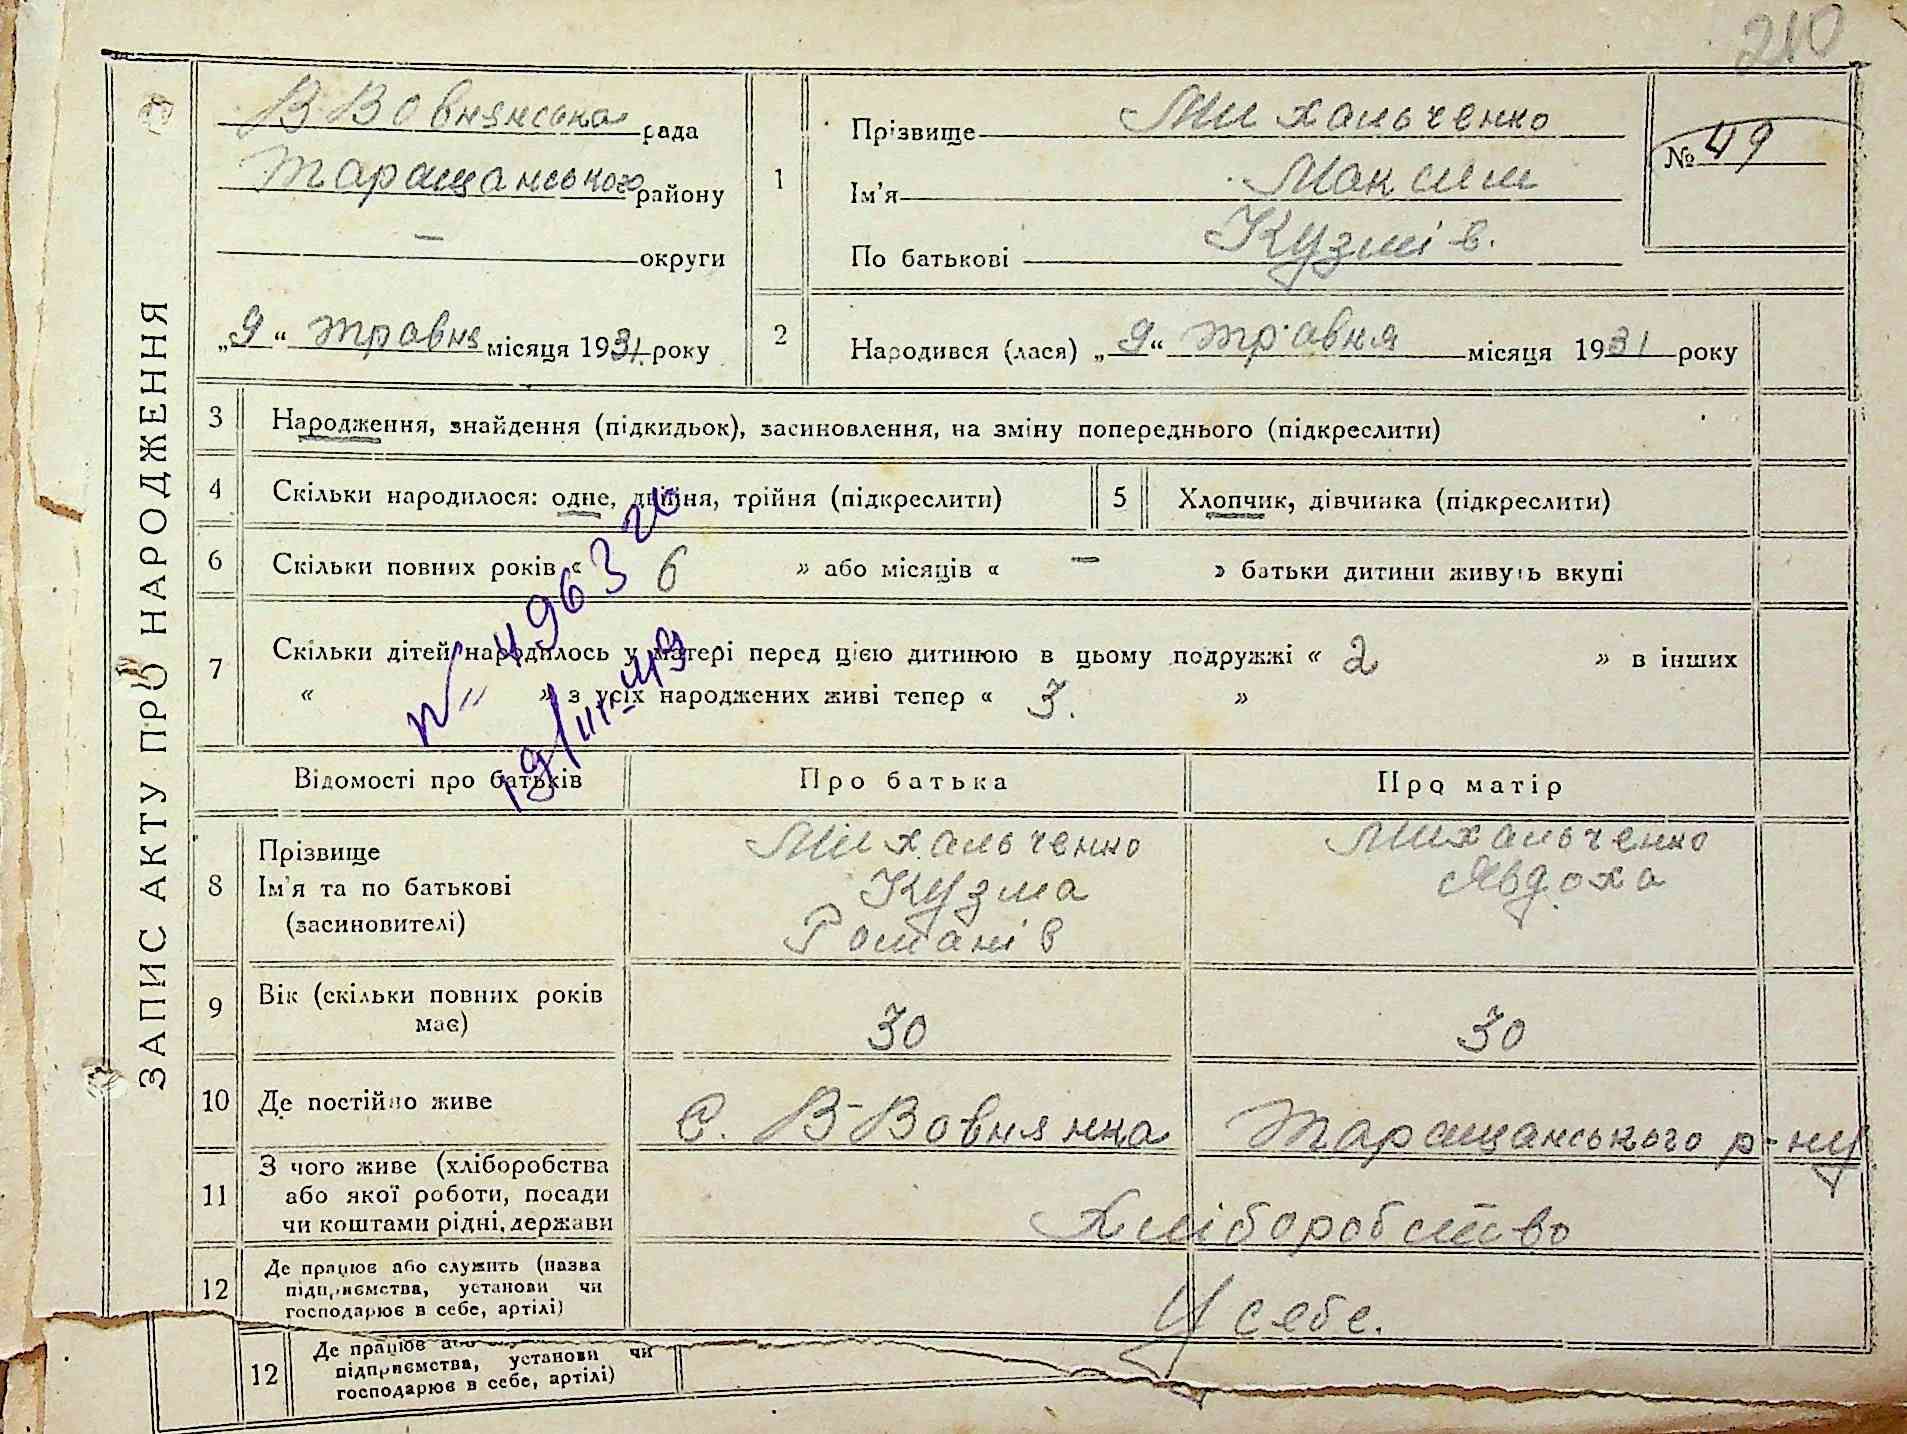 210
ЗАПИС АКТУ ПРО НАРОДЖЕННЯ
В-Вовнянська рада
Таращанського району
— округи
„9“ травня місяця 1931 року
1
Прізвище Михальченко
Ім'я Максим
По батькові Кузмів.
№ 49
2
Народився (лася) „9“ травня місяця 1931 року
3
Народження, знайдення (підкидьок), засиновлення, на зміну попереднього (підкреслити)
4
Скільки народилося: одне, двійня, трійня (підкреслити)
5
Хлопчик, дівчинка (підкреслити)
6
Скільки повних років « 6 » або місяців « — » батьки дитини живуть вкупі
7
Скільки дітей народилось у матері перед цією дитиною в цьому подружжі « 2 » в інших
« » з усіх народжених живі тепер « 3. »
19/III-49
Відомості про батьків
Про батька
Про матір
8
Прізвище
Ім'я та по батькові
(засиновителі)
Михальченко
Кузма
Романів
Михальченко
Явдоха
9
Вік (скільки повних років
має)
30
30
10
Де постійно живе
с. В-Вовнянка Таращанського р-ну
11
З чого живе (хліборобства
або якої роботи, посади
чи коштами рідні, держави
Хліборобство
12
Де працює або служить (назва
підприємства, установи чи
господарює в себе, артілі)
У себе.
12
Де працює
підприємства, установи чи
господарює в себе, артілі)